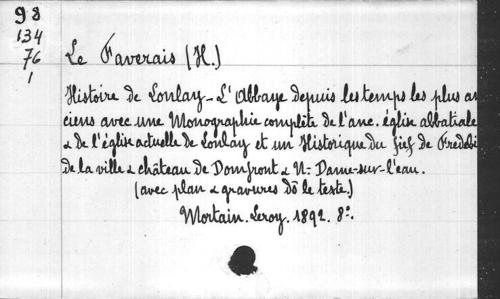 98
134
76
1
Le Faverais (H.)
Histoire de Lonlay-L'Abbaye depuis les temps les plus an
ciens avec une Monographie complète de l'anc. église abbatiale
& de l'église actuelle de Lonlay et un Historique du fief de Fredebi
de la ville & château de Domfront & N.-Dame-sur-l'eau.
(avec plan & gravures ds le texte.)
Mortain. Leroy. 1892. 8°.